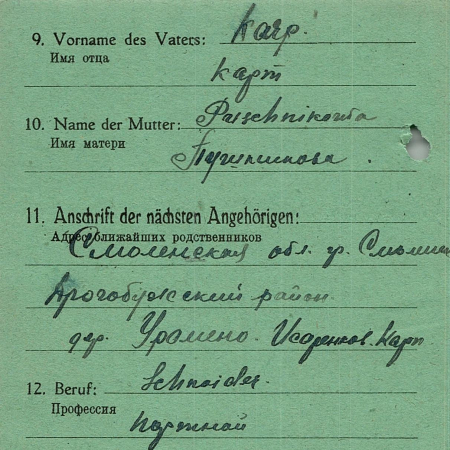 9. Vorname des Vaters: Karp.
Имя отца
Карп
10. Name der Mutter: Puschnikowa
Имя матери
11. Anschrift der nächsten Angehörigen:
Адрес ближайших родственников
Смоленская обл. гр.
район
дер. Карп
12. Beruf: Schneider.
Профессия
портной